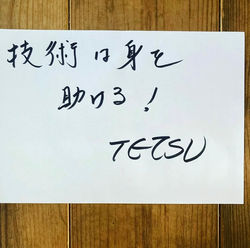 技術は身を
助ける!
TETSU